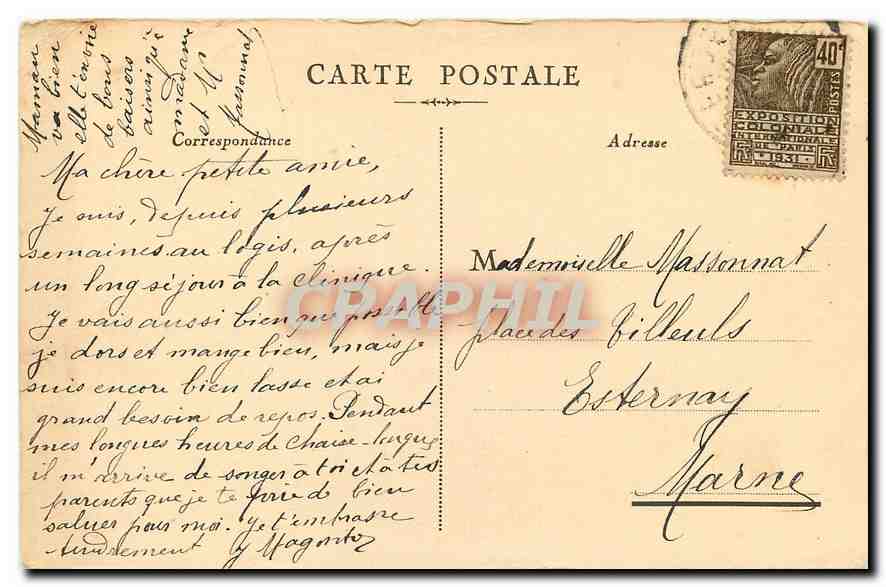 Maman
va bien
elle t'envoie
de bons
baisers
ainsi qu'à
madame
et Mr
Massonnat
CARTE POSTALE
Correspondance
Adresse
40c
POSTES
EXPOSITION
COLONIALE
INTERNATIONALE
DE PARIS
1931
Ma chère petite amie,
Je suis, depuis plusieurs
semaines au logis, après
un long séjour à la clinique.
Je vais aussi bien que possible
je dors et mange bien, mais je
suis encore bien lasse et ai
grand besoin de repos. Pendant
mes longues heures de chaise-longue
il m'arrive de songer à toi et à tes
parents que je te prie de bien
saluer pour moi. Je t'embrasse
tendrement
Mademoiselle Massonnat
place des Tilleuls
Esternay
Marne
CRAPHIL